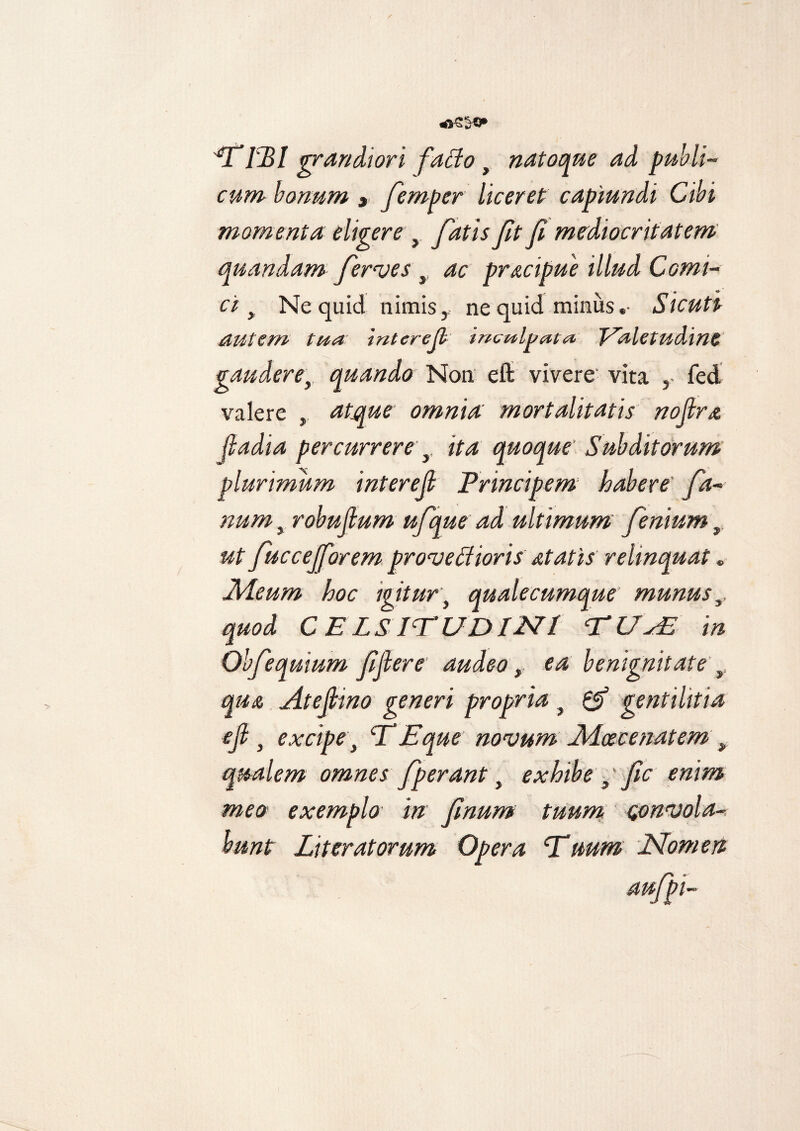 TIBI grandiori facto, natoque ad publi-
cum bonum, ſemper liceret capiundi Cibi
momenta eligere, ſatis ſit ſi mediocritatem
quandam ſerves, ac præcipuè illud Comi-
ci, Ne quid nimis, ne quid minùs. Sicuti
autem tua intereſt inculpata Valetudine
gaudere, quando Non eſt vivere vita, ſed
valere, atque omnia mortalitatis noſtræ
ſtadia percurrere, ita quoque Subditorum
plurimùm intereſt Principem habere ſa-
num, robuſtum uſque ad ultimum ſenium,
ut ſucceſſorem provectioris ætatis relinquat.
Meum hoc igitur, qualecumque munus,
quod CELSITUDINI TUÆ in
Obſequium ſiſtere audeo, ea benignitate,
quæ Ateſtino generi propria, & gentilitia
eſt, excipe, TEque novum Mœcenatem,
qualem omnes ſperant, exhibe, ſic enim
meo exemplo in ſinum tuum convola-
bunt Literatorum Opera Tuum Nomen
auſpi-